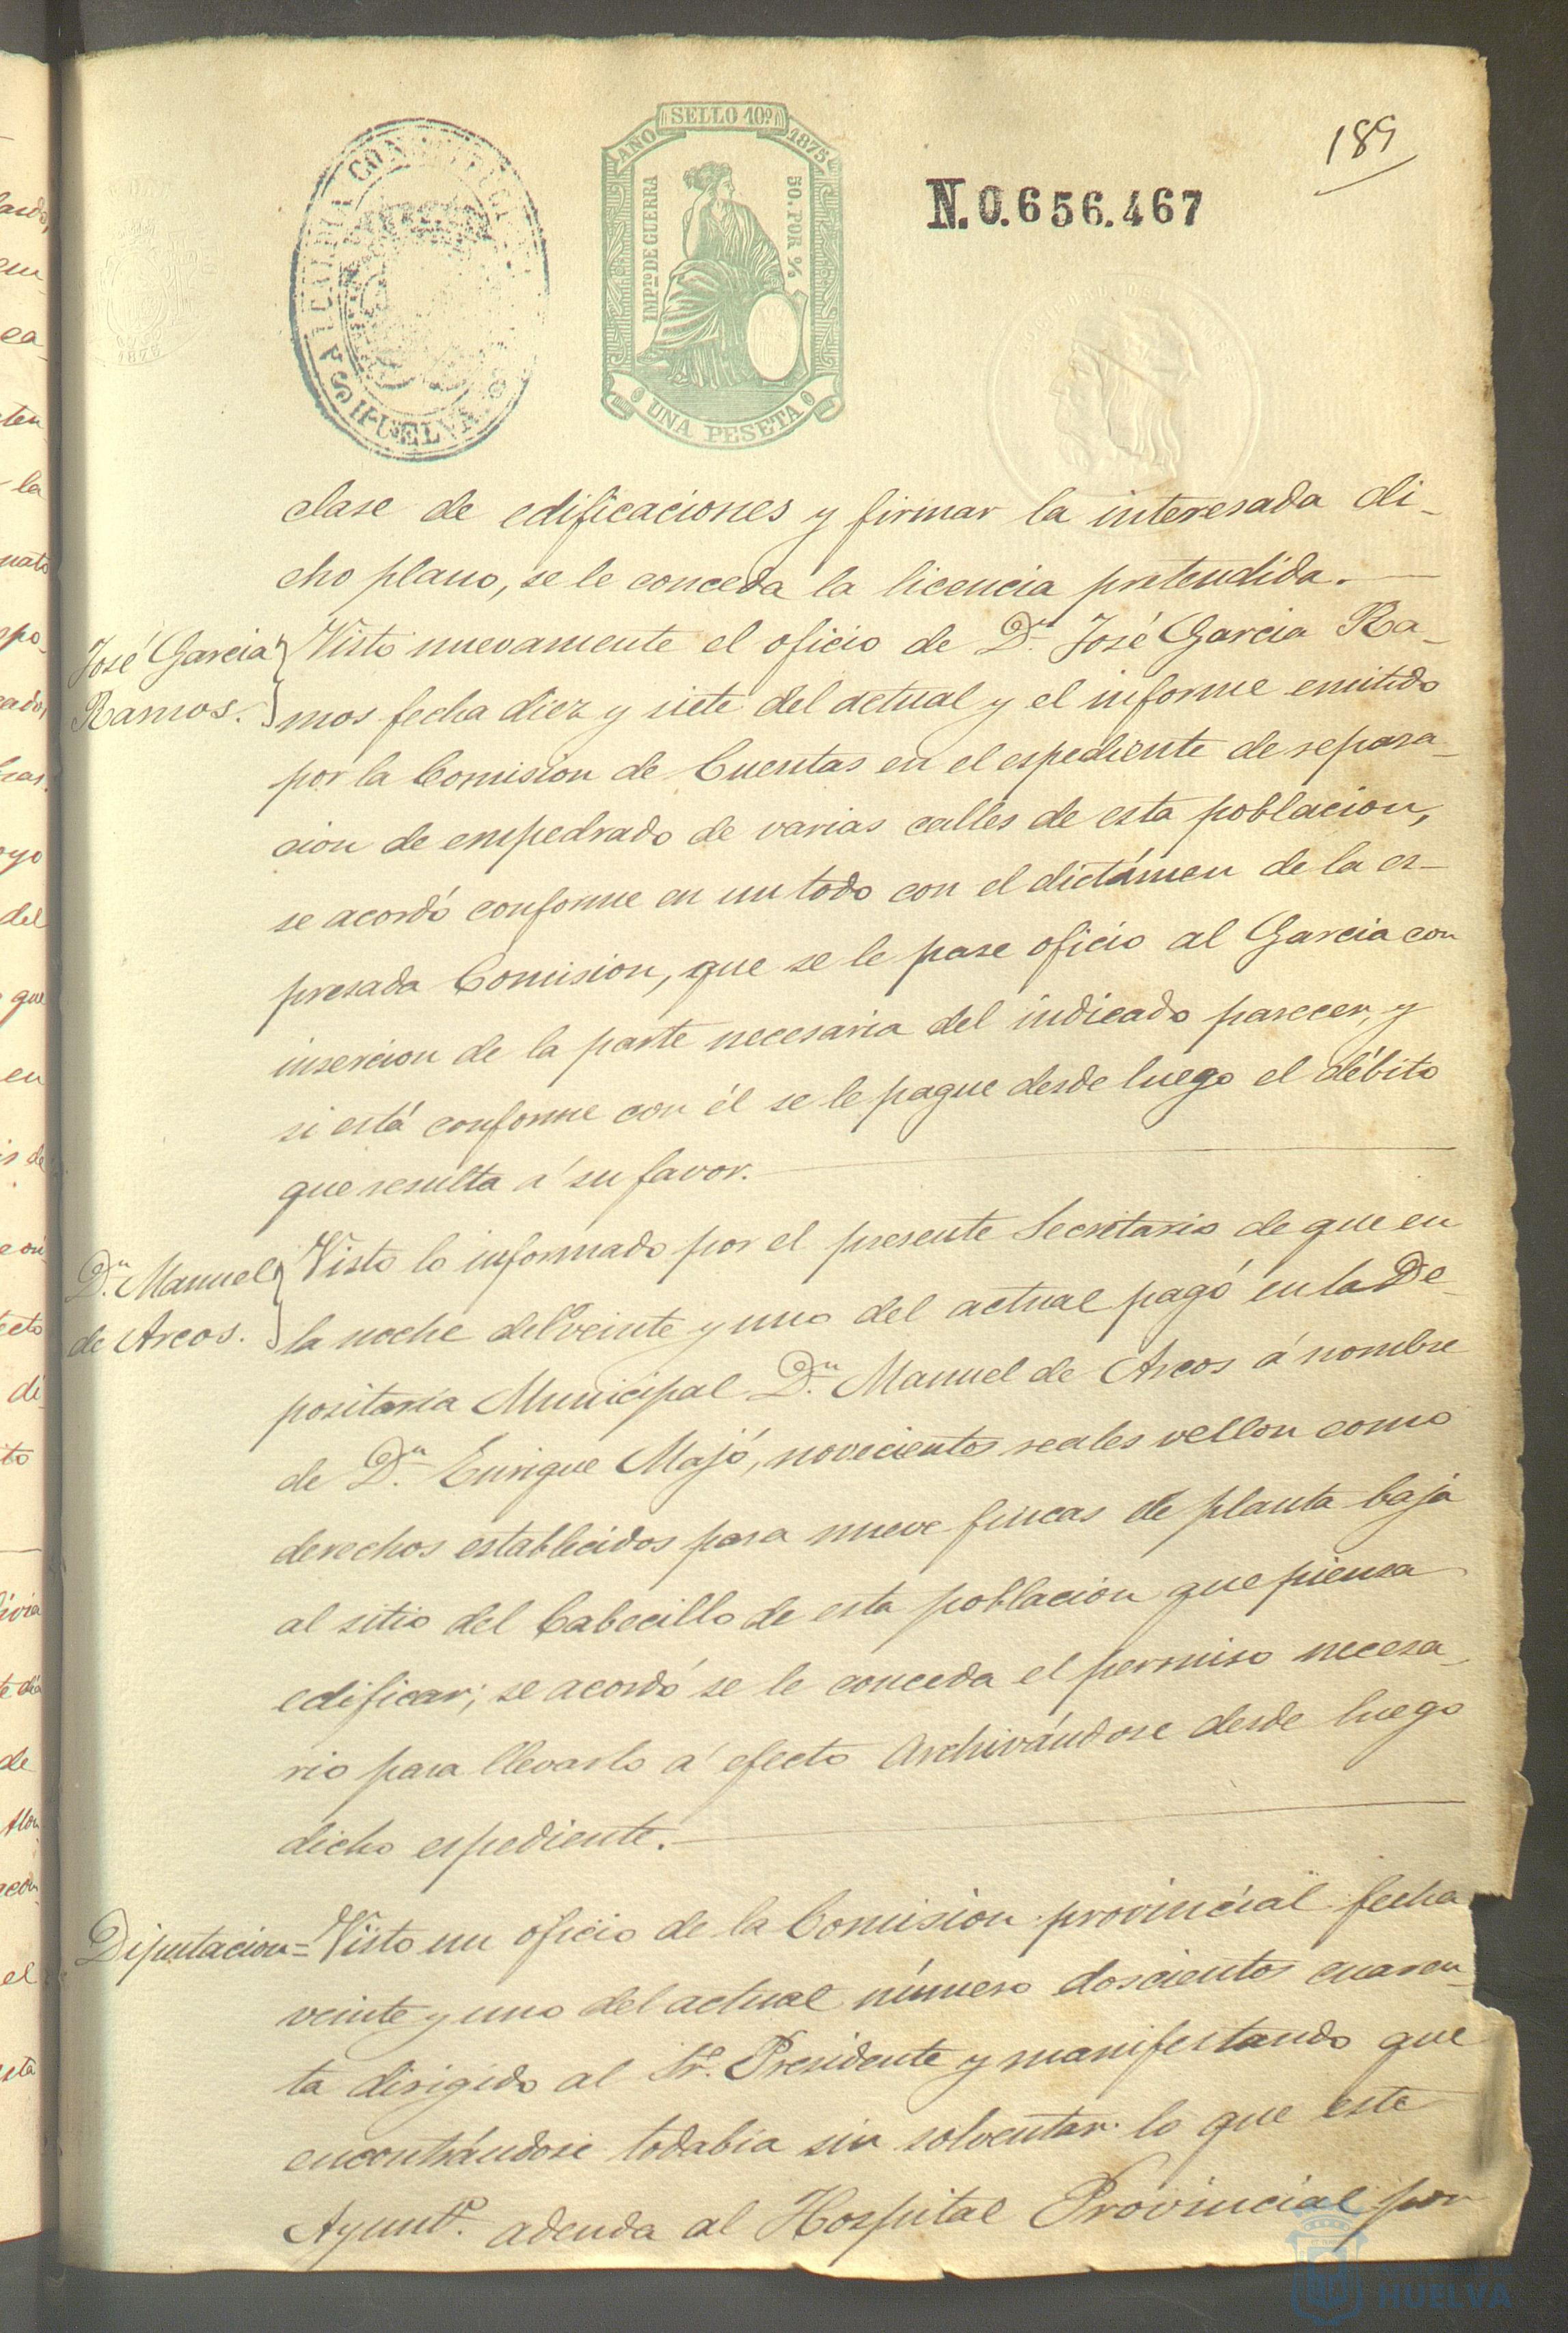 189
SELLO 10º
AÑO 1875
IMPTO DE GUERRA
50. POR %
UNA PESETA
N.0.656.467
ALCALDIA CONSTITUCIONAL
HUELVA
clase de edificaciones y firmar la interesada di-
cho plano, se le conceda la licencia pretendida.
José Garcia
Ramos.
Visto nuevamente el oficio de Dn. José Garcia Ra-
mos fecha diez y siete del actual y el informe emitido
por la Comision de Cuentas en el espediente de repara-
cion de empedrado de varias calles de esta poblacion,
se acordó conforme en un todo con el dictámen de la es-
presada Comision, que se le pase oficio al Garcia con
insercion de la parte necesaria del indicado parecer, y
si está conforme con él se le pague desde luego el débito
que resulta á su favor.
Dn. Manuel
de Arcos.
Visto lo informado por el presente Secretario de que en
la noche del veinte y uno del actual pagó en la De-
positaria Municipal Dn. Manuel de Arcos á nombre
de Dn. Enrique Majó, novecientos reales vellon como
derechos establecidos para nueve fincas de planta baja
al sitio del Cabecillo de esta poblacion que piensa
edificar; se acordó se le conceda el permiso necesa-
rio para llevarlo á efecto archivándose desde luego
dicho espediente.
Diputacion=
Visto un oficio de la Comision provincial fecha
veinte y uno del actual número doscientos cuaren-
ta dirigido al Sr. Presidente y manifestando que
encontrándose todabia sin solventar lo que este
Ayuntº. adeuda al Hospital Provincial por
HUELVA